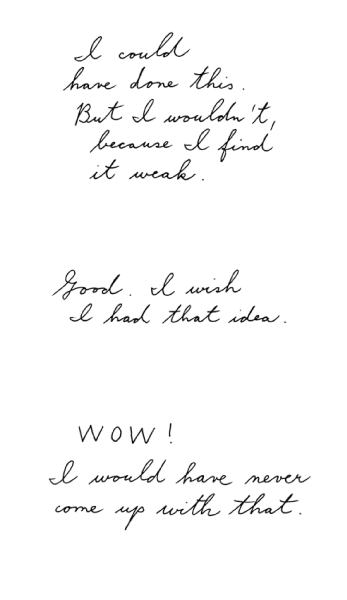 I could
have done this.
But I wouldn't,
because I find
it weak.
Good. I wish
I had that idea.
WOW!
I would have never
come up with that.